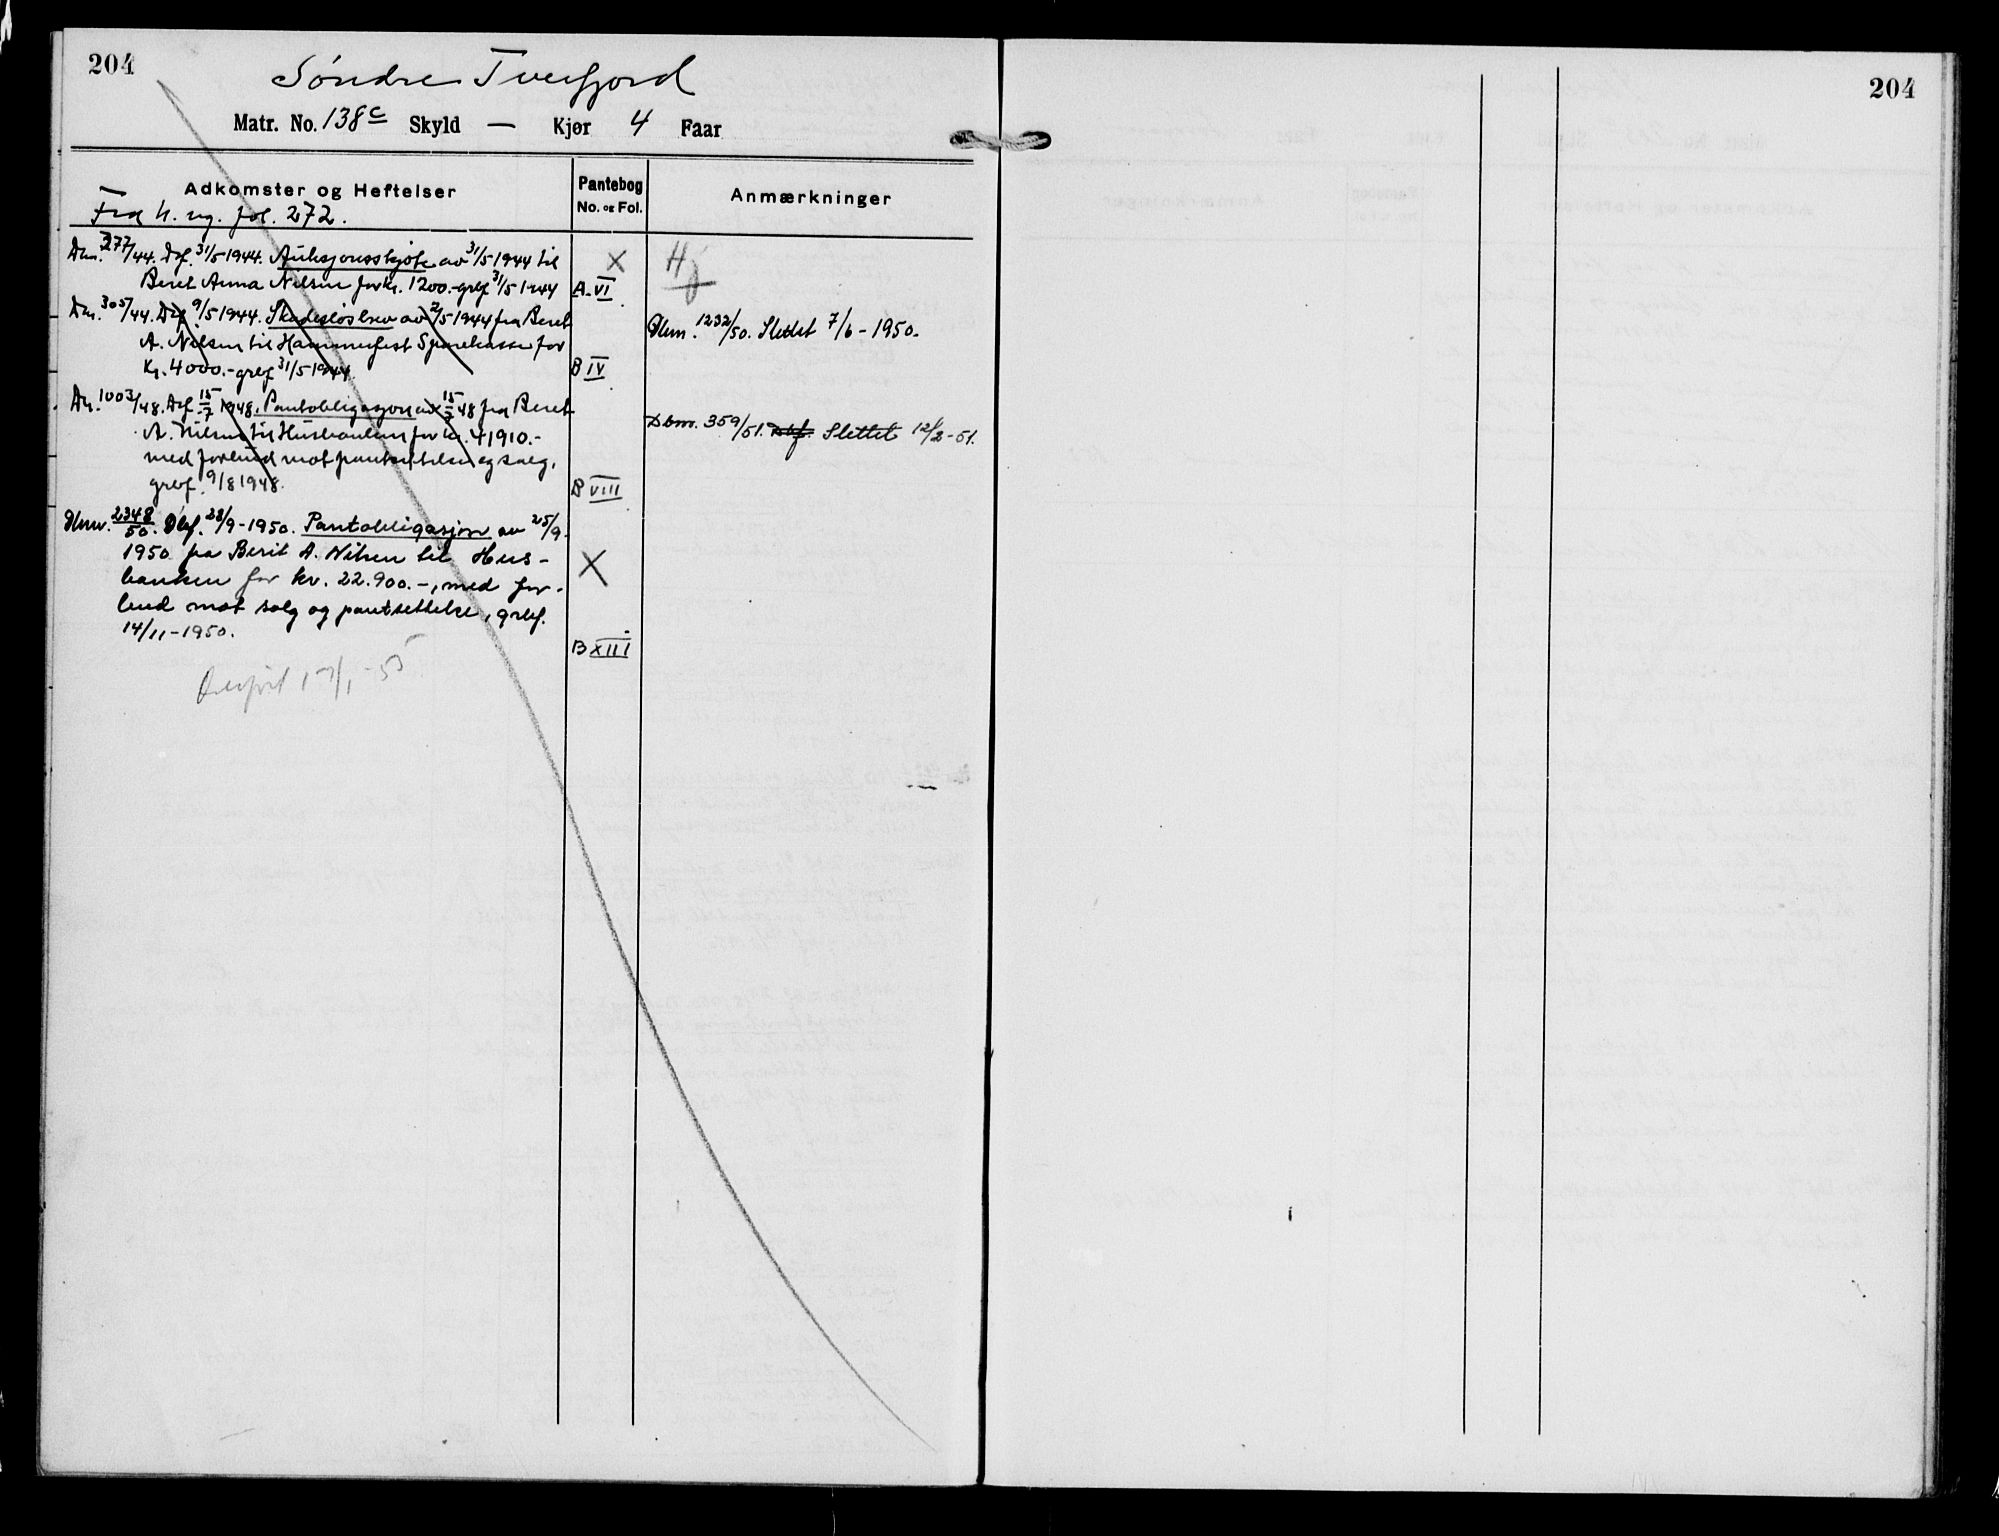 204
Søndre Tverfjord
Matr. No. 138c Skyld — Kjør 4 Faar
Adkomster og Heftelser
Pantebog
No. og Fol.
Anmærkninger
Fra h. reg. fol. 272.
Dbn. 277/44. Dgf. 31/5 1944. Auksjonsskjøte av 31/5 1944 til
Beret Anna Nilsen for kr. 1200.- grbf 31/5 1944
X
A VI
Hj
Dbn. 305/44. Dgf. 9/5 1944. Skadesløsbrev av 2/5 1944 fra Beret
A. Nilsen til Hammerfest Sparekasse for
Kr. 4000.- grbf 31/5 1944
B IV
Dbnr. 1232/50. Slettet 7/6 - 1950.
Dn. 1003/48. Dgf. 15/7 1948. Pantobligasjon av 15/7 48 fra Beret
A. Nilsen til Husbanken for kr. 41910.-
med forbud mot pantsettelse og salg,
grbf. 9/8 1948.
B VIII
Dbnr. 359/51. Slettet 12/2 - 51.
Dbnr. 2348/50. Dbf. 28/9 - 1950. Pantobligasjon av 25/9-
1950 fra Berit A. Nilsen til Hus-
banken for kr. 22.900.-, med for-
bud mot salg og pantsettelse, grbf.
14/11 - 1950.
X
B XIII
204